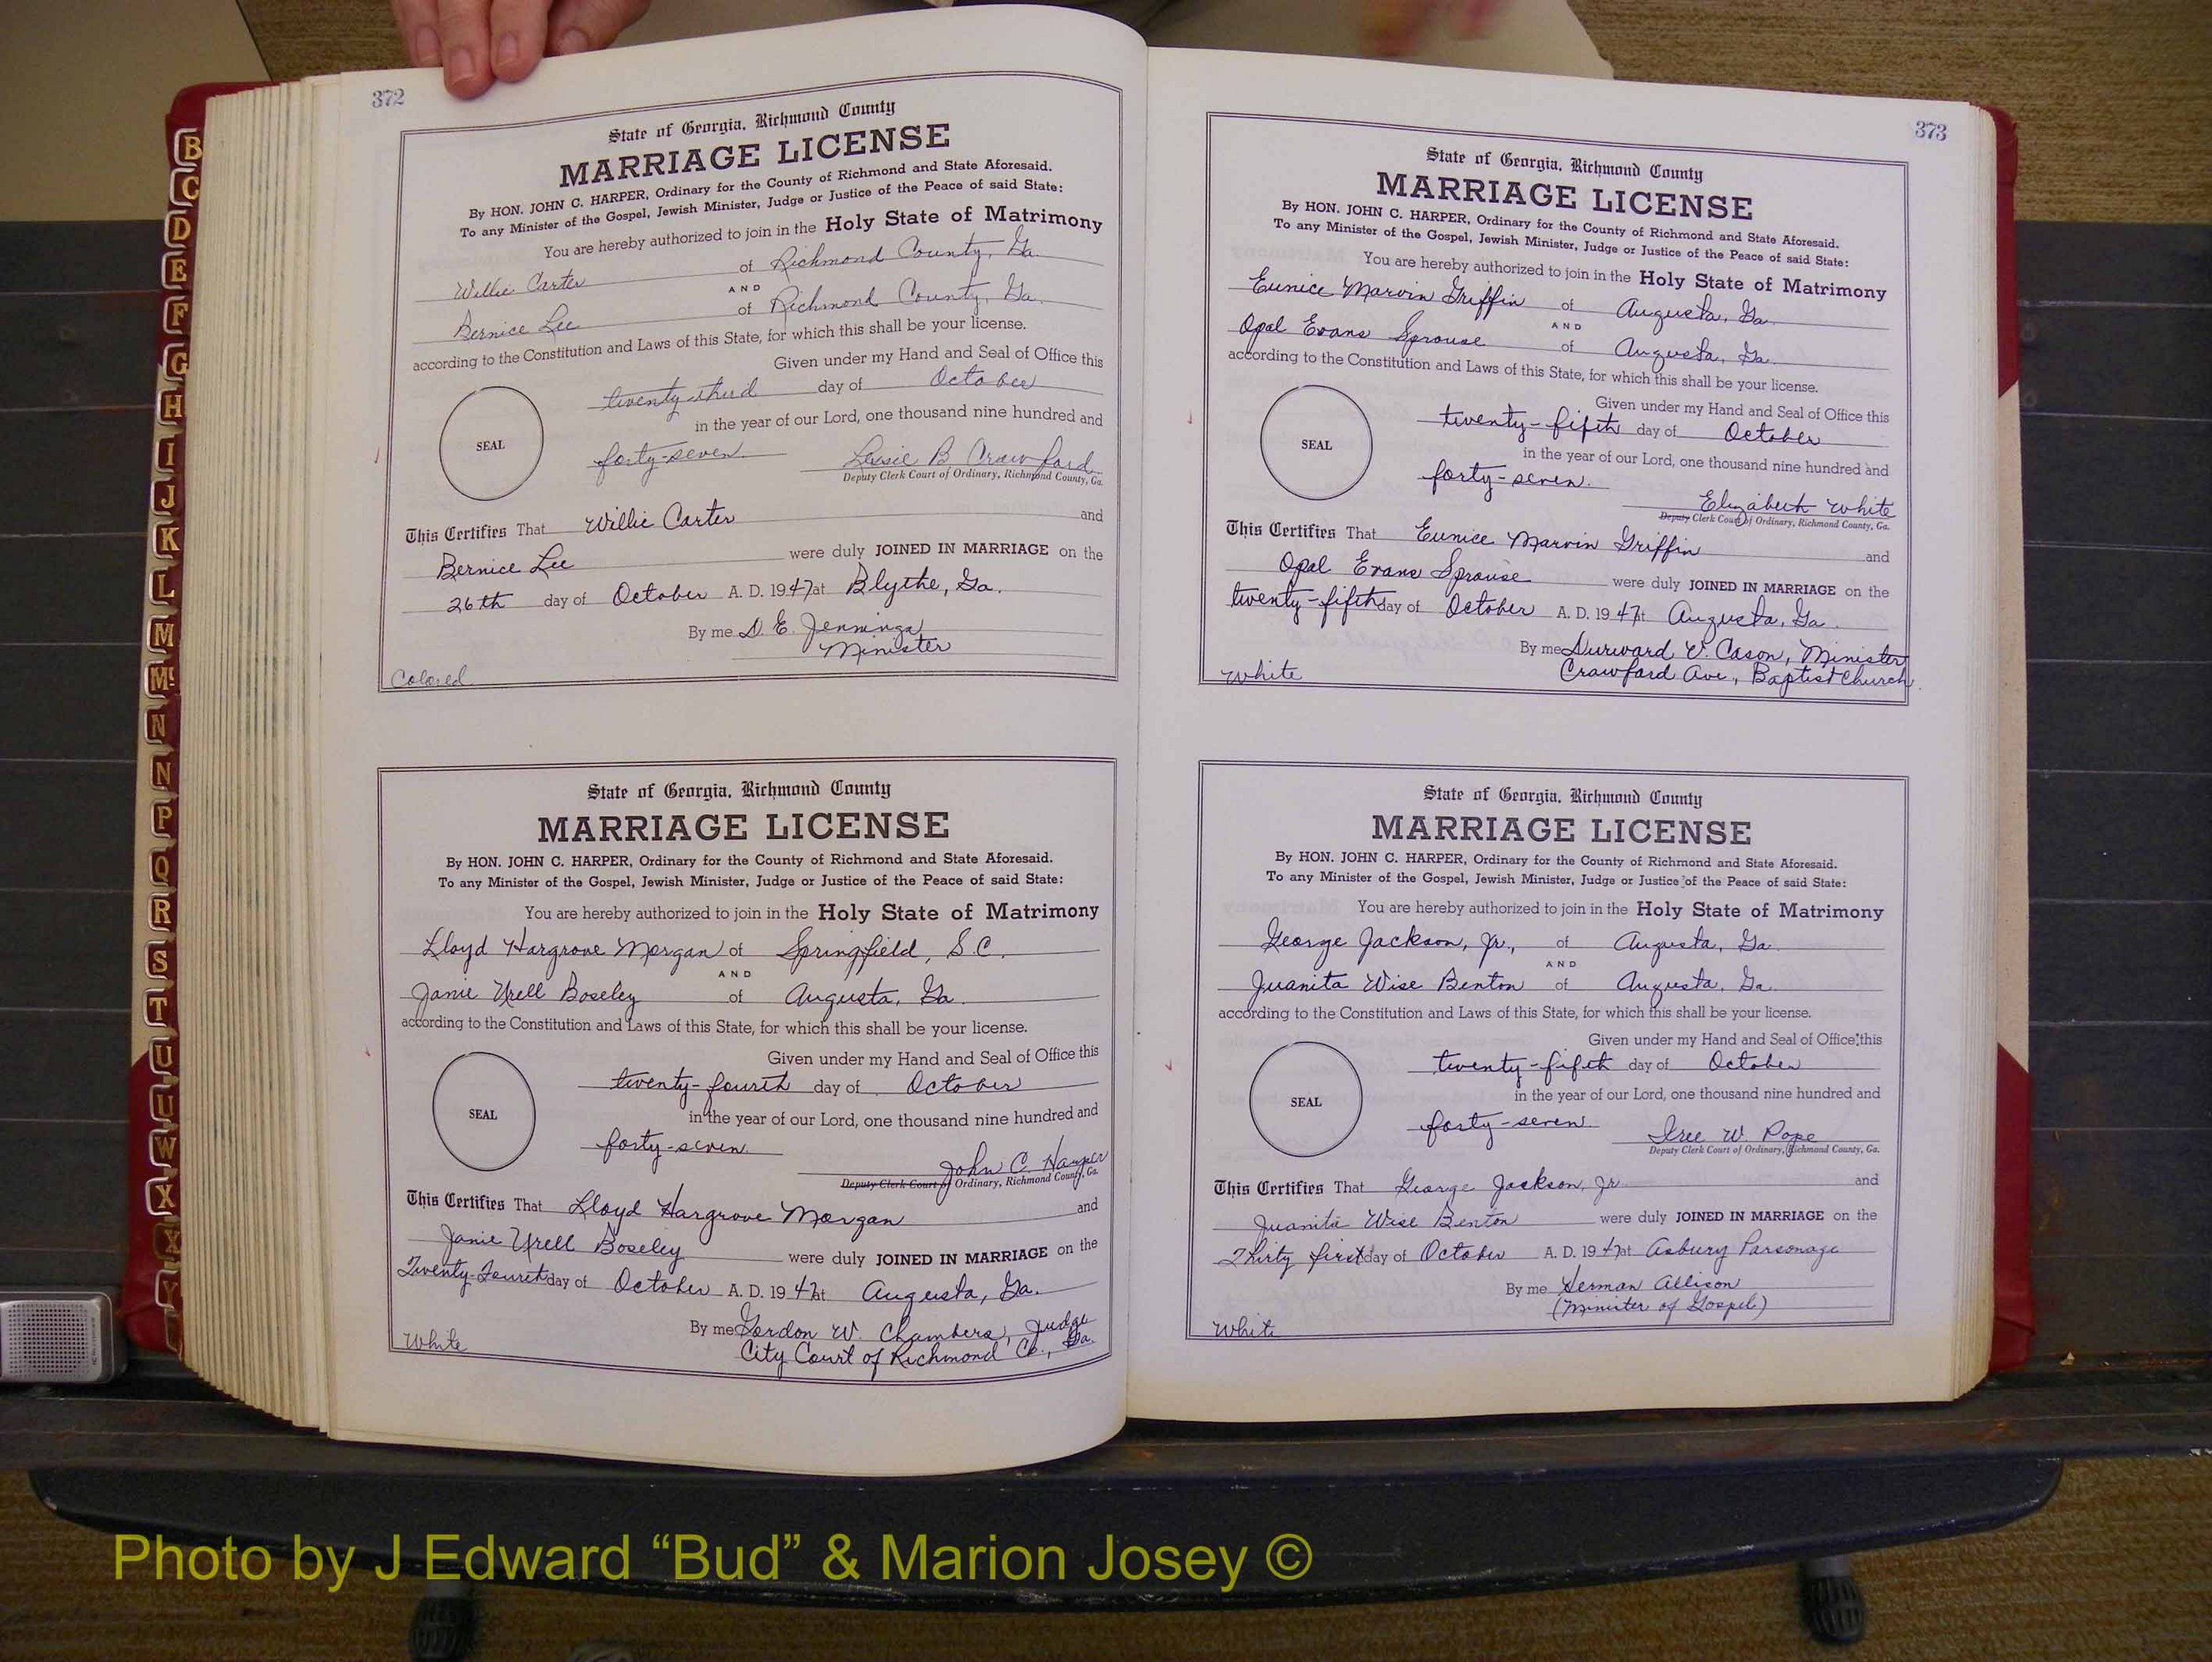 372
State of Georgia, Richmond County
MARRIAGE LICENSE
By HON. JOHN C. HARPER, Ordinary for the County of Richmond and State Aforesaid.
To any Minister of the Gospel, Jewish Minister, Judge or Justice of the Peace of said State:
You are hereby authorized to join in the Holy State of Matrimony
Willie Carter of Richmond County, Ga.
AND
Bernice Lee of Richmond County, Ga.
according to the Constitution and Laws of this State, for which this shall be your license.
Given under my Hand and Seal of Office this
twenty-third day of October
in the year of our Lord, one thousand nine hundred and
SEAL
forty-seven. Lessie B Crawford
Deputy Clerk Court of Ordinary, Richmond County, Ga.
This Certifies That Willie Carter and
Bernice Lee were duly JOINED IN MARRIAGE on the
26th day of October A. D. 1947 at Blythe, Ga.
By me D. E. Jennings
Minister
Colored
State of Georgia, Richmond County
MARRIAGE LICENSE
By HON. JOHN C. HARPER, Ordinary for the County of Richmond and State Aforesaid.
To any Minister of the Gospel, Jewish Minister, Judge or Justice of the Peace of said State:
You are hereby authorized to join in the Holy State of Matrimony
Lloyd Hargrove Morgan of Springfield, S.C.
AND
Janie Urell Boseley of Augusta, Ga.
according to the Constitution and Laws of this State, for which this shall be your license.
Given under my Hand and Seal of Office this
twenty-fourth day of October
in the year of our Lord, one thousand nine hundred and
SEAL
forty-seven. John C. Harper
Deputy Clerk Court of Ordinary, Richmond County, Ga.
This Certifies That Lloyd Hargrove Morgan and
Janie Urell Boseley were duly JOINED IN MARRIAGE on the
Twenty-Fourth day of October A. D. 1947 at Augusta, Ga.
By me Gordon W. Chambers, Judge
City Court of Richmond Co., Ga.
White
373
State of Georgia, Richmond County
MARRIAGE LICENSE
By HON. JOHN C. HARPER, Ordinary for the County of Richmond and State Aforesaid.
To any Minister of the Gospel, Jewish Minister, Judge or Justice of the Peace of said State:
You are hereby authorized to join in the Holy State of Matrimony
Eunice Marvin Griffin of Augusta, Ga.
AND
Opal Evans Sprouse of Augusta, Ga.
according to the Constitution and Laws of this State, for which this shall be your license.
Given under my Hand and Seal of Office this
twenty-fifth day of October
in the year of our Lord, one thousand nine hundred and
SEAL
forty-seven. Elizabeth White
Deputy Clerk Court of Ordinary, Richmond County, Ga.
This Certifies That Eunice Marvin Griffin and
Opal Evans Sprouse were duly JOINED IN MARRIAGE on the
twenty-fifth day of October A. D. 1947 at Augusta, Ga.
By me Durward V. Cason, Minister
Crawford Ave., Baptist Church
White
State of Georgia, Richmond County
MARRIAGE LICENSE
By HON. JOHN C. HARPER, Ordinary for the County of Richmond and State Aforesaid.
To any Minister of the Gospel, Jewish Minister, Judge or Justice of the Peace of said State:
You are hereby authorized to join in the Holy State of Matrimony
George Jackson, Jr., of Augusta, Ga.
AND
Juanita Wise Benton of Augusta, Ga.
according to the Constitution and Laws of this State, for which this shall be your license.
Given under my Hand and Seal of Office this
twenty-fifth day of October
in the year of our Lord, one thousand nine hundred and
SEAL
forty-seven. Iree W. Pope
Deputy Clerk Court of Ordinary, Richmond County, Ga.
This Certifies That George Jackson, Jr and
Juanita Wise Benton were duly JOINED IN MARRIAGE on the
Thirty first day of October A. D. 1947 at Asbury Parsonage
By me Herman Allison
(Minister of Gospel)
White
B
C
D
E
F
G
H
I
J
K
L
M
Mc
N
N
P
Q
R
S
T
U
U
W
X
X
Y
Photo by J Edward “Bud” & Marion Josey ©